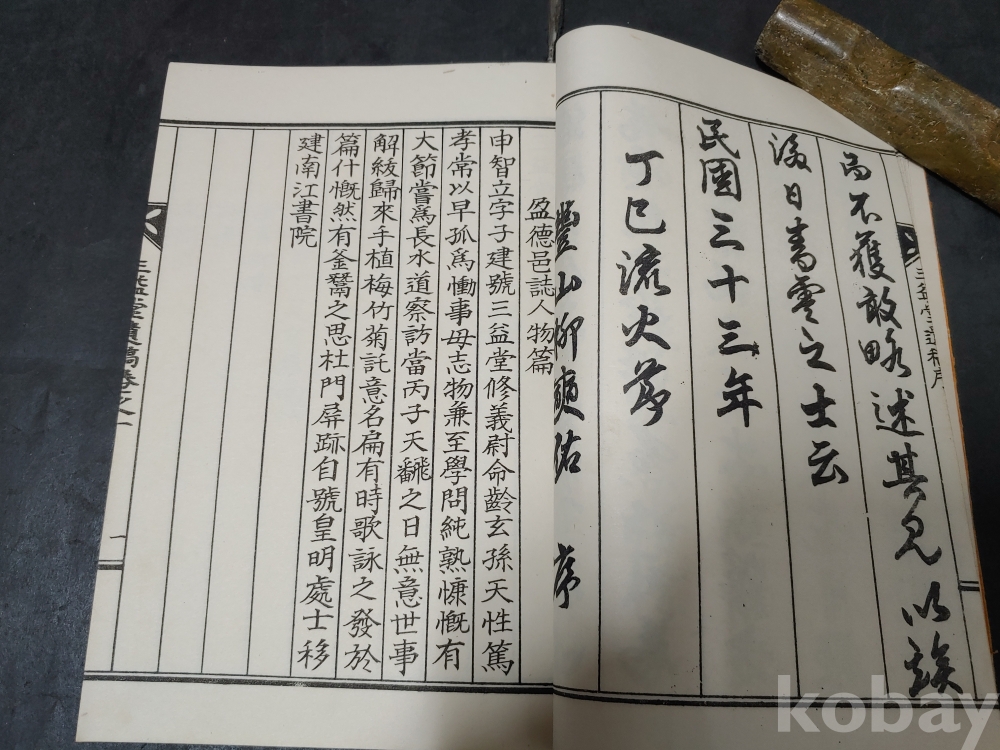 而不獲敢略述其見以諉
後日青雲之士云
民國三十三年
丁巳流火節
豐山柳奭佑 序
盈德邑誌人物篇
申智立字子建號三益堂修義尉命齡玄孫天性篤
孝常以早孤爲慟事母志物兼至學問純熟慷慨有
大節嘗爲長水道察訪當丙子天飜之日無意世事
解紱歸來手植梅竹菊託意名扁有時歌詠之發於
篇什慨然有釜鬵之思杜門屛跡自號皇明處士移
建南江書院
三益堂遺稿卷之一
一
三益堂遺稿序
kobay